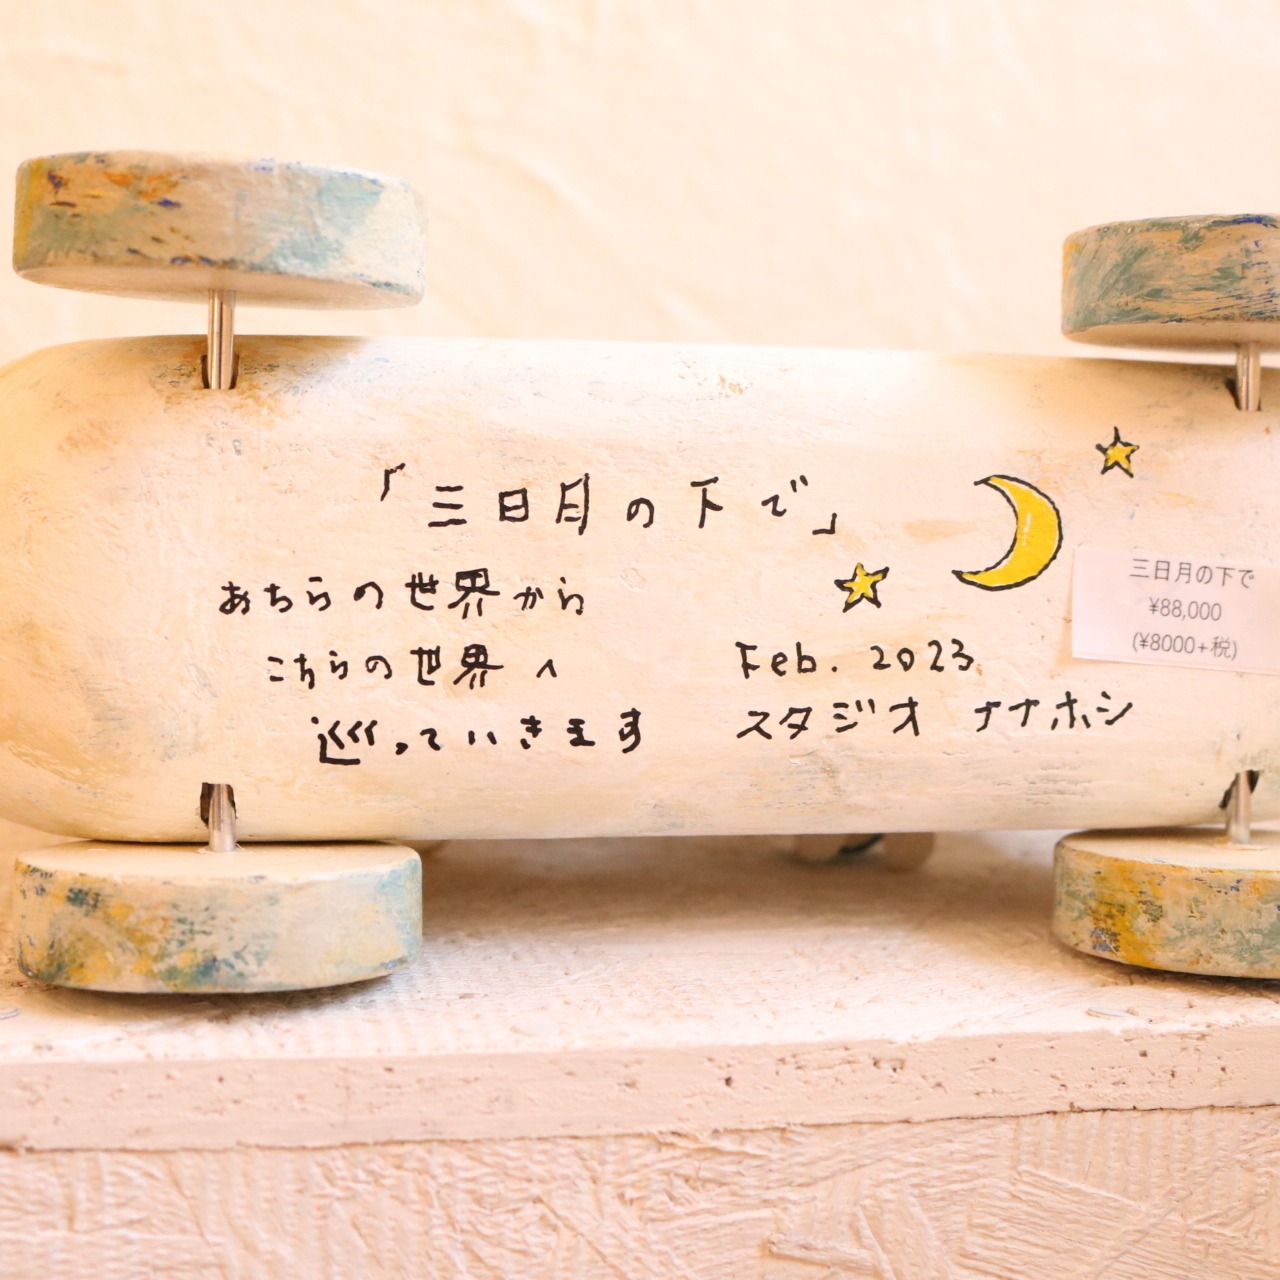 「三日月の下で」
あちらの世界から
こちらの世界へ
巡っていきます
Feb. 2023
スタジオ ナナホシ
三日月の下で
¥88,000
(¥8000+税)